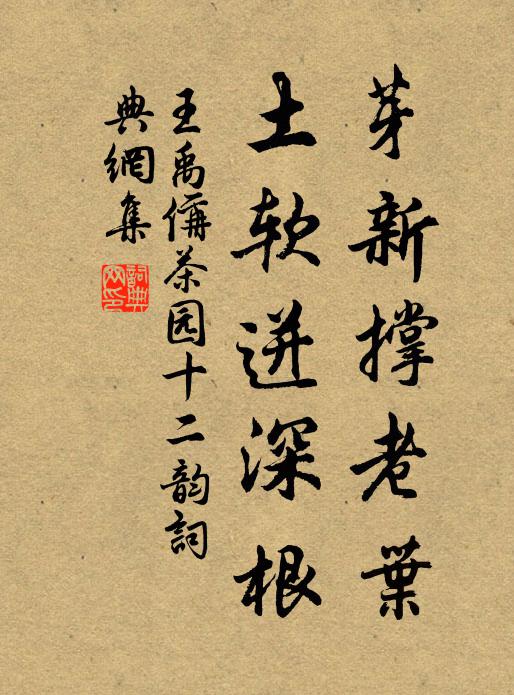 芽新撑老葉
土软迸深根
王禹偁茶园十二韵詞
典網集
詞典
网印